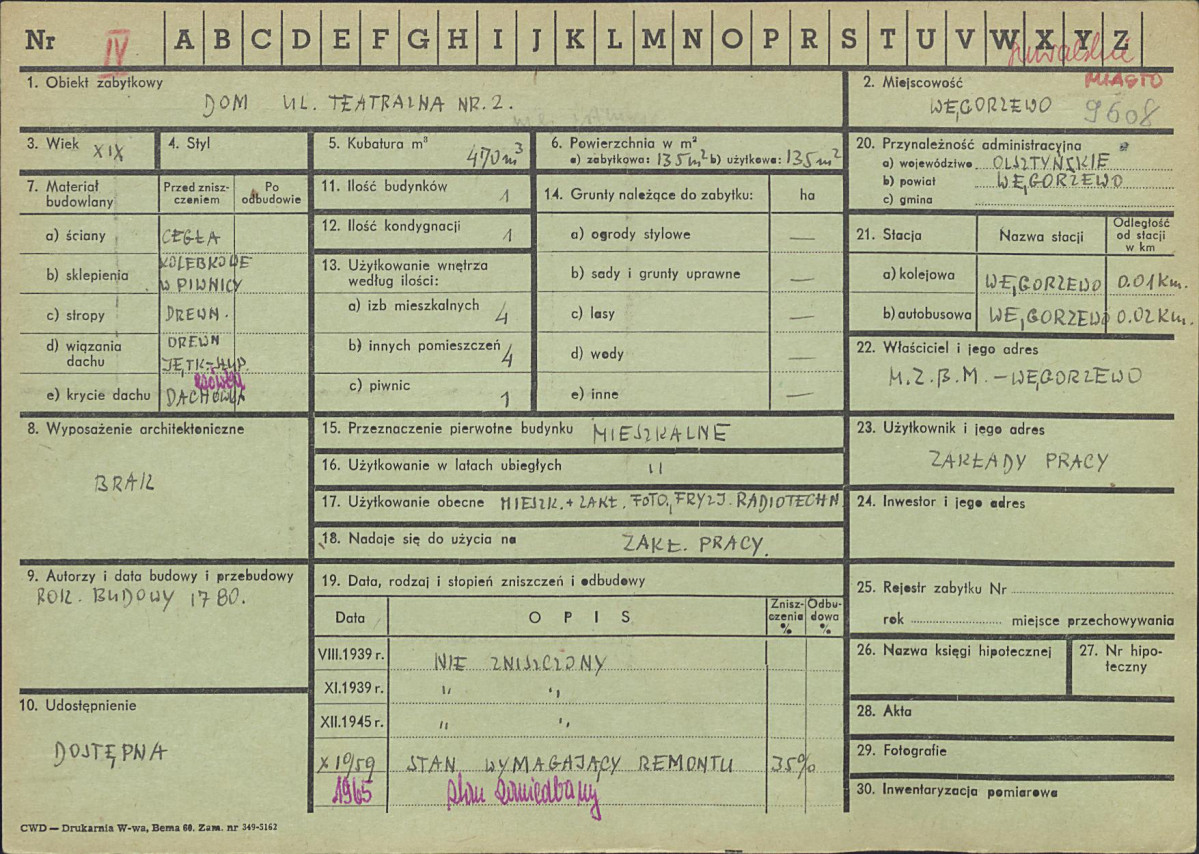 Nr IV A B C D E F G H I J K L M N O P R S T U V W X Y Z
suwalskie
MIASTO
1. Obiekt zabytkowy
DOM UL. TEATRALNA NR. 2.
2. Miejscowość
WĘGORZEWO 9608
3. Wiek XIX
4. Styl
5. Kubatura m³
470 m³
6. Powierzchnia w m²
a) zabytkowa: 135 m² b) użytkowa: 135 m²
20. Przynależność administracyjna
a) województwo OLSZTYŃSKIE
b) powiat WĘGORZEWO
c) gmina
7. Materiał budowlany
Przed zniszczeniem
Po odbudowie
a) ściany CEGŁA
b) sklepienia KOLEBKOWE W PIWNICY
c) stropy DREWN.
d) wiązania dachu DREWN JĘTK-
e) krycie dachu DACHÓWKA
11. Ilość budynków 1
12. Ilość kondygnacji 1
13. Użytkowanie wnętrza według ilości:
a) izb mieszkalnych 4
b) innych pomieszczeń 4
c) piwnic 1
14. Grunty należące do zabytku: ha
a) ogrody stylowe —
b) sady i grunty uprawne —
c) lasy —
d) wody —
e) inne —
21. Stacja
Nazwa stacji
Odległość od stacji w km
a) kolejowa WĘGORZEWO 0.01 Km.
b) autobusowa WĘGORZEWO 0.02 Km.
22. Właściciel i jego adres
M.Z.B.M. – WĘGORZEWO
8. Wyposażenie architektoniczne
BRAK
15. Przeznaczenie pierwotne budynku MIESZKALNE
16. Użytkowanie w latach ubiegłych "
17. Użytkowanie obecne MIESZK. + ZAKŁ. FOTO, FRYZJ. RADIOTECHN
18. Nadaje się do użycia na ZAKŁ. PRACY.
23. Użytkownik i jego adres
ZAKŁADY PRACY
24. Inwestor i jego adres
9. Autorzy i data budowy i przebudowy
ROK. BUDOWY 1780.
19. Data, rodzaj i stopień zniszczeń i odbudowy
Data
OPIS
Zniszczenia %
Odbudowa %
VIII.1939 r. NIE ZNISZCZONY
XI.1939 r. " "
XII.1945 r. " "
X 1959 STAN WYMAGAJĄCY REMONTU 35%
1965 stan zaniedbany
25. Rejestr zabytku Nr
rok miejsce przechowywania
26. Nazwa księgi hipotecznej
27. Nr hipoteczny
10. Udostępnienie
DOSTĘPNA
28. Akta
29. Fotografie
30. Inwentaryzacja pomiarowa
CWD — Drukarnia W-wa, Bema 60. Zam. nr 349-5162